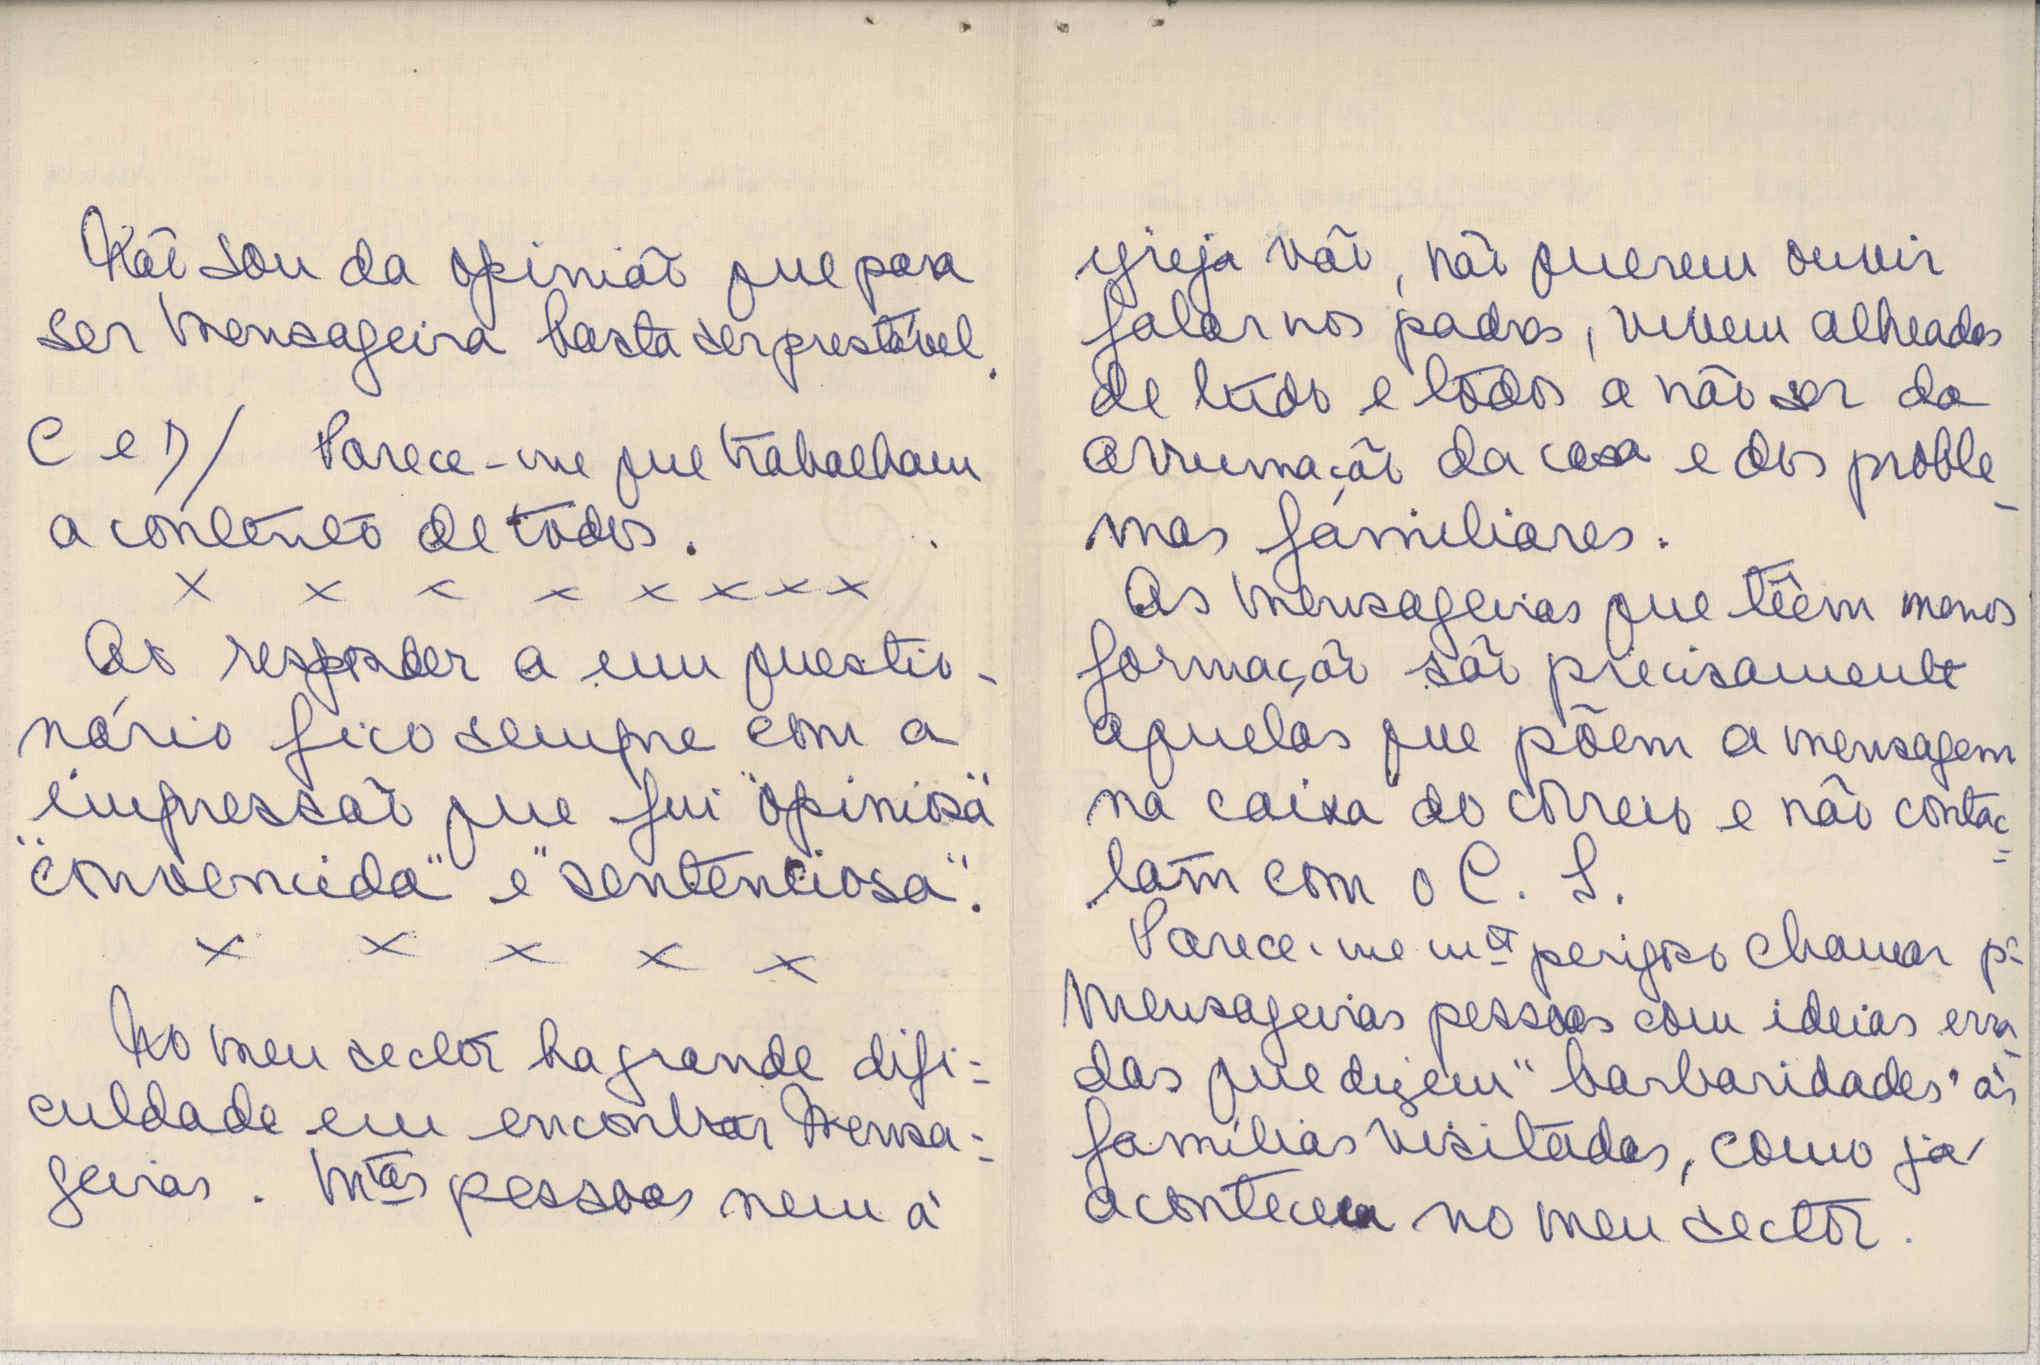 Não sou da opinião que para
ser mensageira basta ser prestável.
C e D/ Parece-me que trabalham
a contento de todos.
x x x x x x x x
Ao responder a um questio-
nário fico sempre com a
impressão que fui "opiniosa"
"convencida" e "sentenciosa".
x x x x x
No meu sector ha grande difi-
culdade em encontrar Mensa-
geiras. Mtas pessoas nem à
igreja vão, não querem ouvir
falar nos padres, vivem alheadas
de tudo e todos a não ser da
arrumação da casa e dos proble-
mas familiares.
As mensageiras que têem menos
formação são precisamente
aquelas que põem a mensagem
na caixa do correio e não contac-
tam com o C. S.
Parece-me mto perigoso chamar pa
Mensageiras pessoas com ideias erra-
das que dizem "barbaridades" às
famílias visitadas, como já
aconteceu no meu sector.